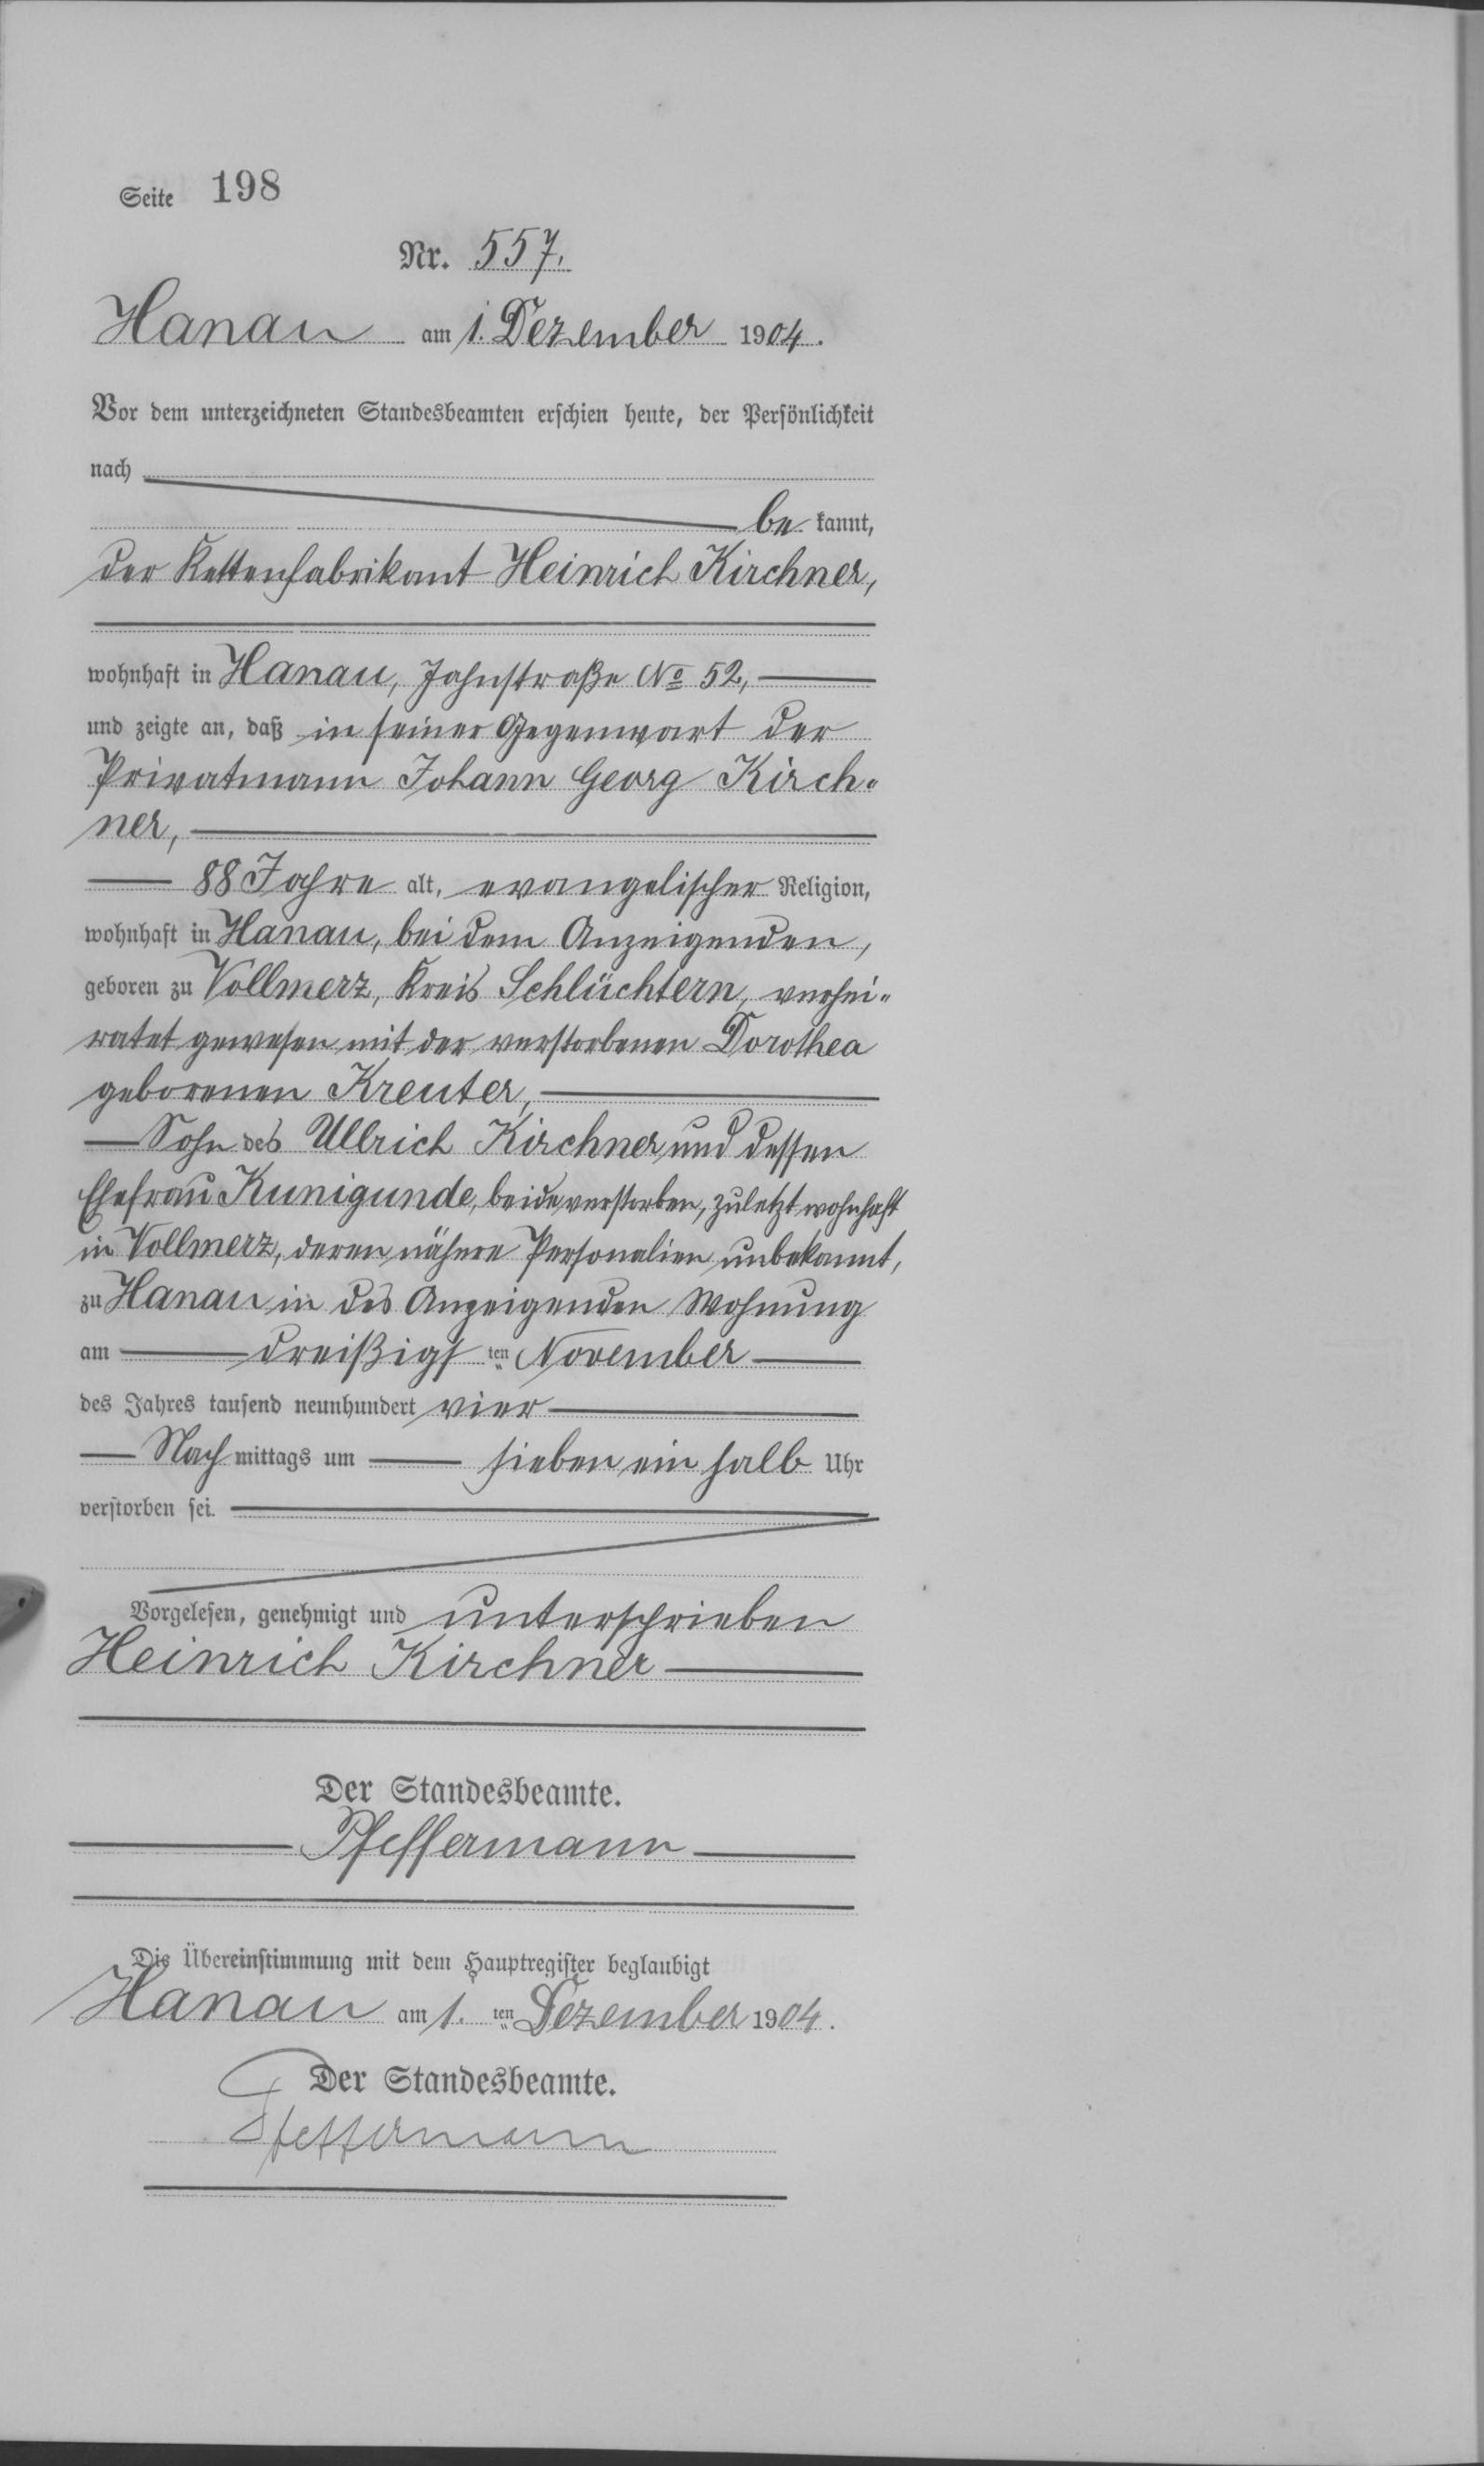 Seite 198
Nr. 557.
Hanau am 1. Dezember 1904.
Vor dem unterzeichneten Standesbeamten erschien heute, der Persönlichkeit
nach
be kannt,
der Kettenfabrikant Heinrich Kirchner,
wohnhaft in Hanau, Jahnstraße No 52,
und zeigte an, daß in seiner Gegenwart der
Privatmann Johann Georg Kirch-
ner,
88 Jahre alt, evangelischer Religion,
wohnhaft in Hanau, bei dem Anzeigenden,
geboren zu Vollmerz, Kreis Schlüchtern, verhei-
ratet gewesen mit der verstorbenen Dorothea
geborenen Kreuter,
Sohn des Ullrich Kirchner und dessen
Ehefrau Kunigunde, beide verstorben, zuletzt wohnhaft
in Vollmerz, deren nähere Personalien unbekannt,
zu Hanau in des Anzeigenden Wohnung
am dreißigsten November
des Jahres tausend neunhundert vier
Nachmittags um sieben ein halb Uhr
verstorben sei.
Vorgelesen, genehmigt und unterschrieben
Heinrich Kirchner
Der Standesbeamte.
Pfeffermann
Die Übereinstimmung mit dem Hauptregister beglaubigt
Hanau am 1. ten Dezember 1904.
Der Standesbeamte.
Pfeffermann